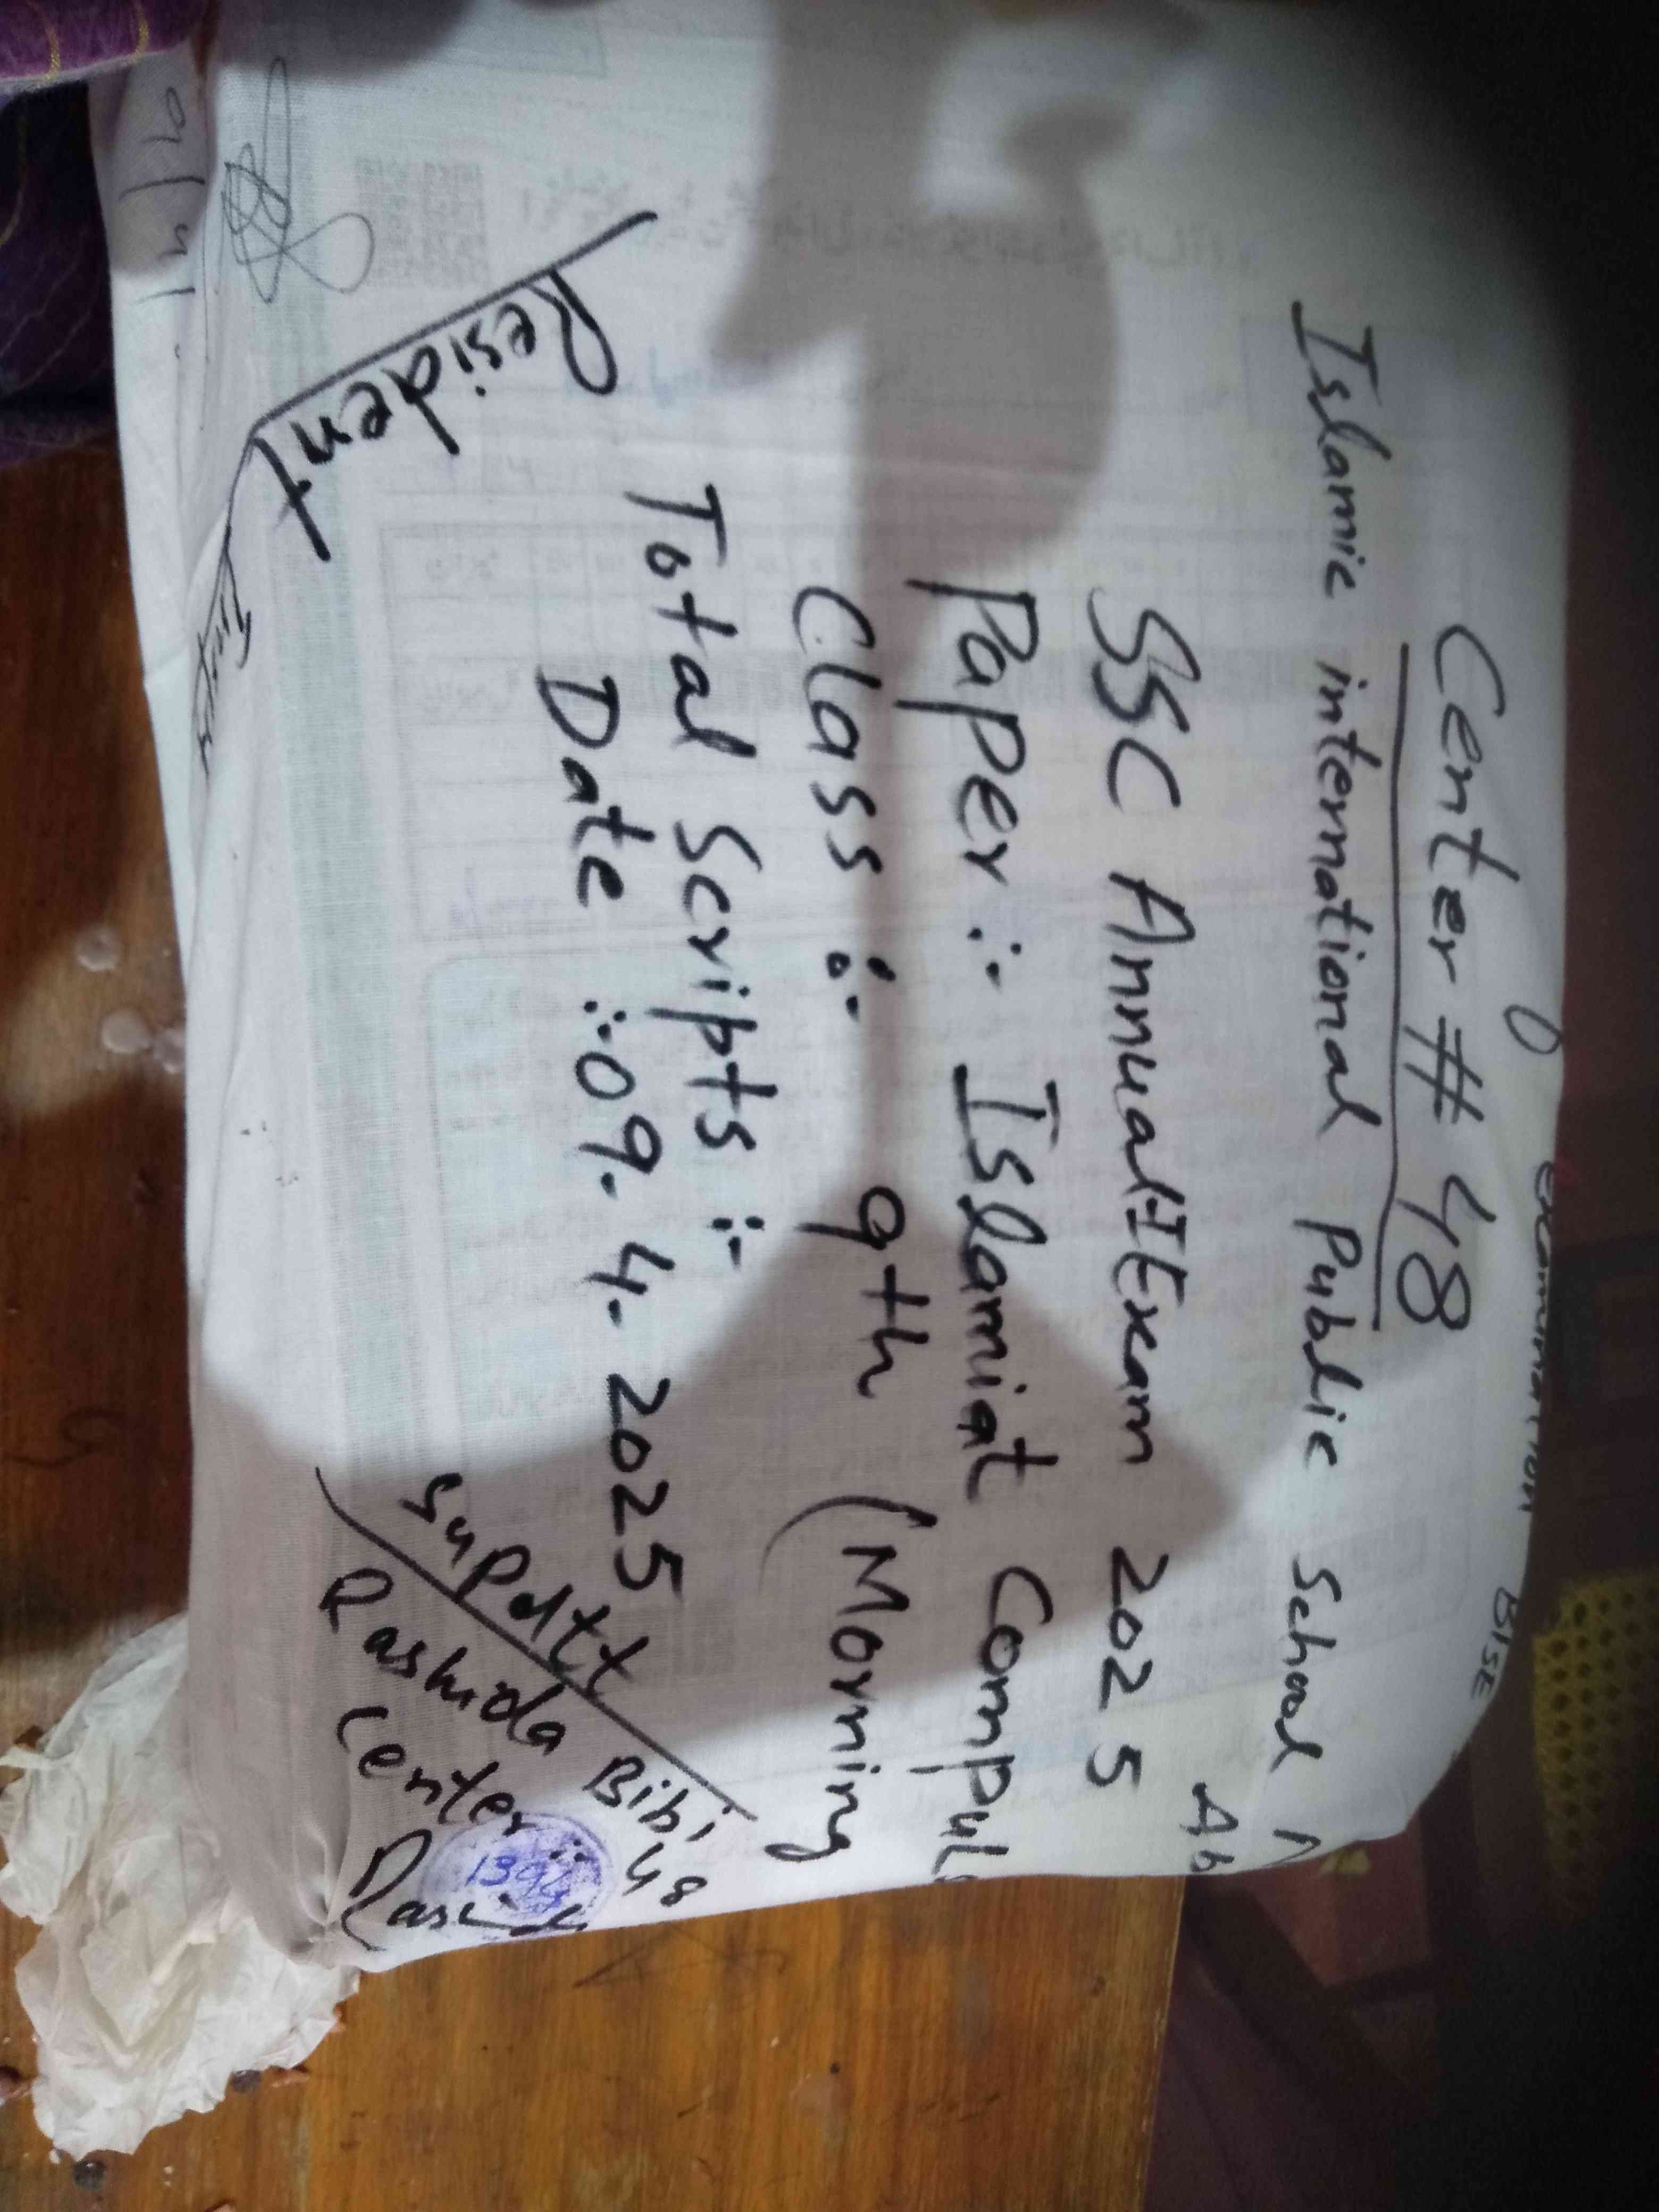 examination BISE
Center # 48
Islamic international Public School
Ab
SSC Annual-I Exam 2025
Paper :- Islamiat
Class :- 9th (Morning
Total Scripts :-
Date :- 09. 4. 2025
Resident
Supdtt
Rashida Bibi
Center :- 48